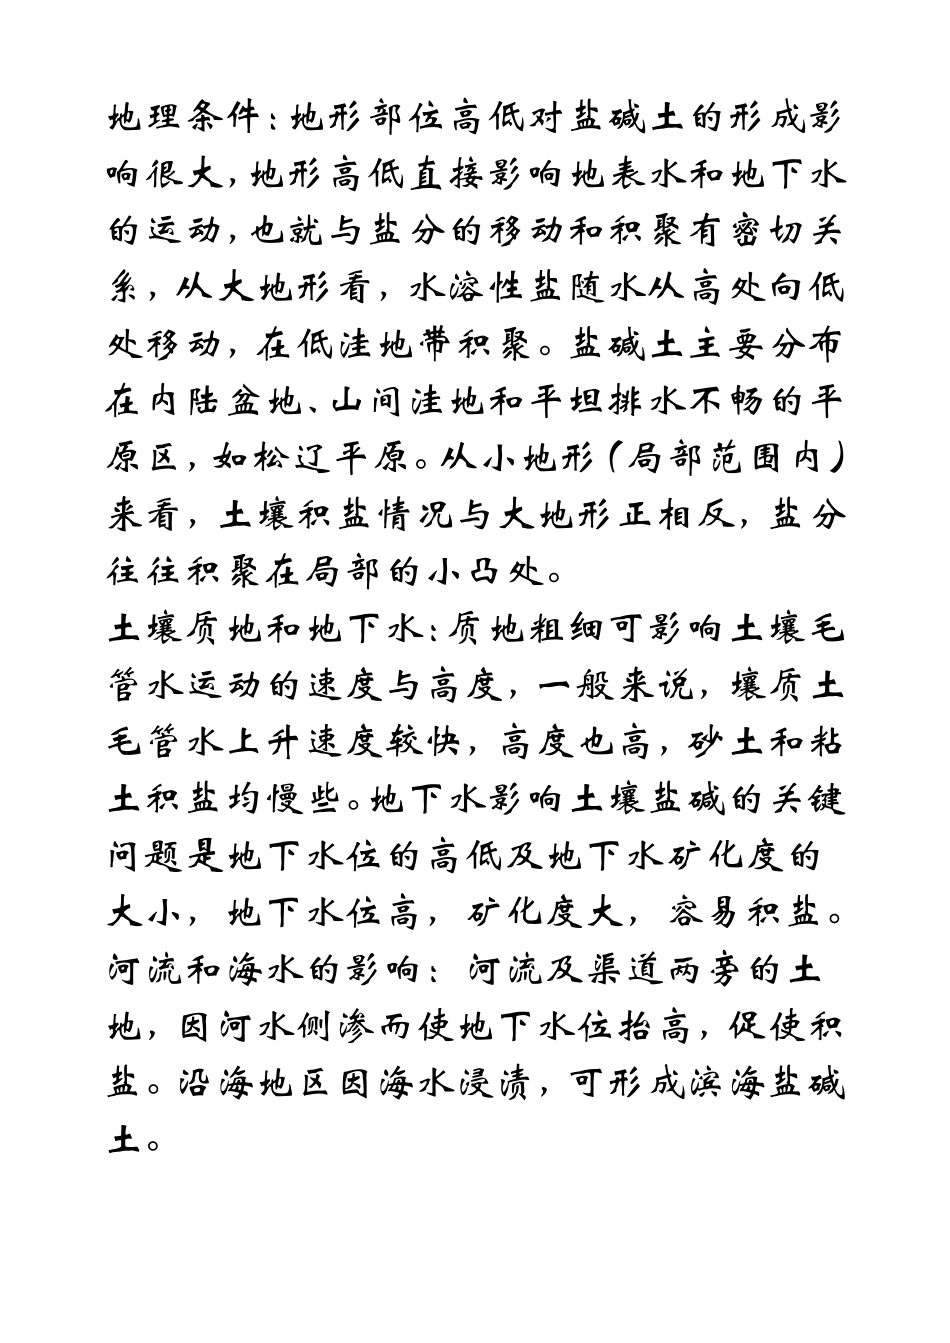 地理条件：地形部位高低对盐碱土的形成影
响很大，地形高低直接影响地表水和地下水
的运动，也就与盐分的移动和积聚有密切关
系，从大地形看，水溶性盐随水从高处向低
处移动，在低洼地带积聚。盐碱土主要分布
在内陆盆地、山间洼地和平坦排水不畅的平
原区，如松辽平原。从小地形（局部范围内）
来看，土壤积盐情况与大地形正相反，盐分
往往积聚在局部的小凸处。
土壤质地和地下水：质地粗细可影响土壤毛
管水运动的速度与高度，一般来说，壤质土
毛管水上升速度较快，高度也高，砂土和粘
土积盐均慢些。地下水影响土壤盐碱的关键
问题是地下水位的高低及地下水矿化度的
大小，地下水位高，矿化度大，容易积盐。
河流和海水的影响：河流及渠道两旁的土
地，因河水侧渗而使地下水位抬高，促使积
盐。沿海地区因海水浸渍，可形成滨海盐碱
土。